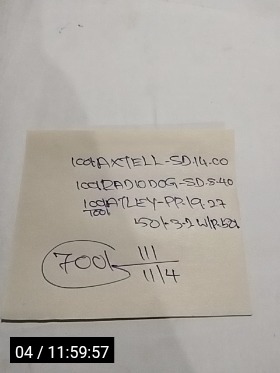 100t AXTELL-SD.14.00
100t RADIODOG-SD.8.40
100t ATLEY-PP.19.27
700t
50t-3-2 W/P.
700t 111
11/4
04 / 11:59:57